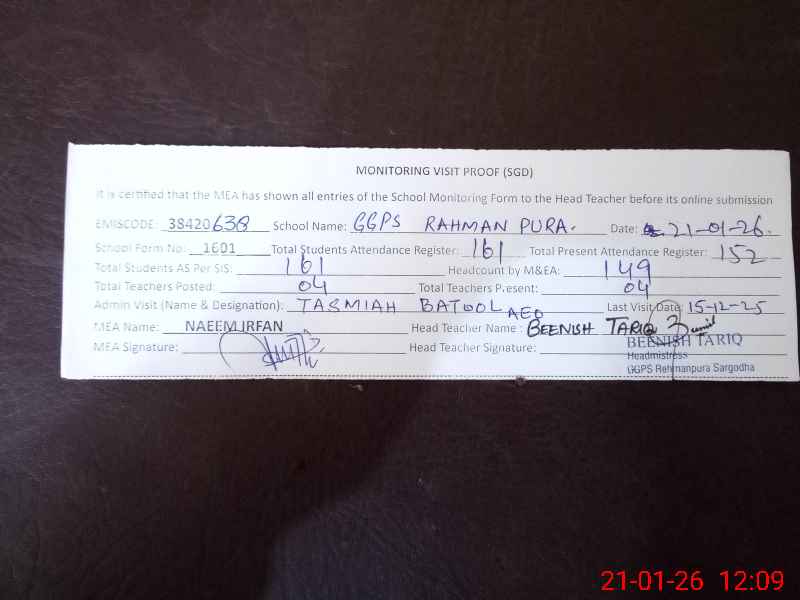 MONITORING VISIT PROOF (SGD)
It is certified that the MEA has shown all entries of the School Monitoring Form to the Head Teacher before its online submission
EMISCODE: 38420638 School Name: GGPS RAHMAN PURA. Date: 21-01-26.
School Form No: 1601 Total Students Attendance Register: 161 Total Present Attendance Register: 152
Total Students AS Per SIS: 161 Headcount by M&EA: 149
Total Teachers Posted: 04 Total Teachers Present: 04
Admin Visit (Name & Designation): TASMIAH BATOOL AEO Last Visit Date: 15-12-25
MEA Name: NAEEM IRFAN Head Teacher Name: BEENISH TARIQ
MEA Signature: Head Teacher Signature:
BEENISH TARIQ
Headmistress
GGPS Rehmanpura Sargodha
21-01-26 12:09